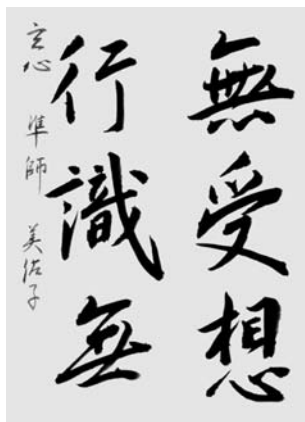 無受想
行識無
玄心 準師 美佑子